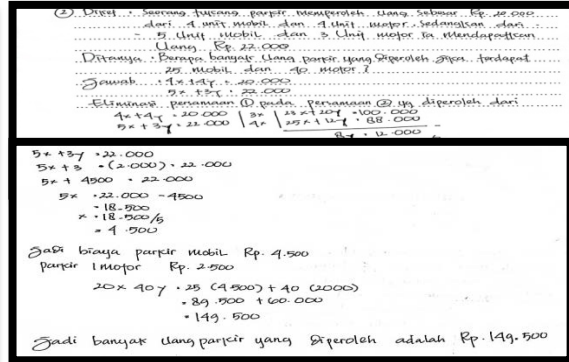 ② Diket : Seorang tukang parkir memperoleh uang sebesar Rp. 20.000
dari 4 unit mobil dan 4 unit motor, sedangkan dari
- 5 Unit mobil dan 3 Unit motor ia mendapatkan
Uang Rp. 22.000
Ditanya : Berapa banyak Uang parkir yang diperoleh jika terdapat
25 mobil dan 40 motor ?
Jawab : 4x + 4y = 20.000
5x + 3y = 22.000
Eliminasi persamaan ① pada persamaan ② yg diperoleh dari
4x + 4y = 20.000 | 5x | 20y = 100.000
5x + 3y = 22.000 | 4x | + 12y = 88.000
8y = 12.000
5x + 3y = 22.000
5x + 3 = (2.000) = 22.000
5x + 4500 = 22.000
5x = 22.000 - 4500
= 18.500
x = 18.500/5
= 4.500
Jadi biaya parkir mobil Rp. 4.500
parkir 1 motor Rp. 2.500
20x 40y = 25 (4500) + 40 (2000)
= 89.500 + 60.000
= 149.500
Jadi banyak uang parkir yang diperoleh adalah Rp. 149.500